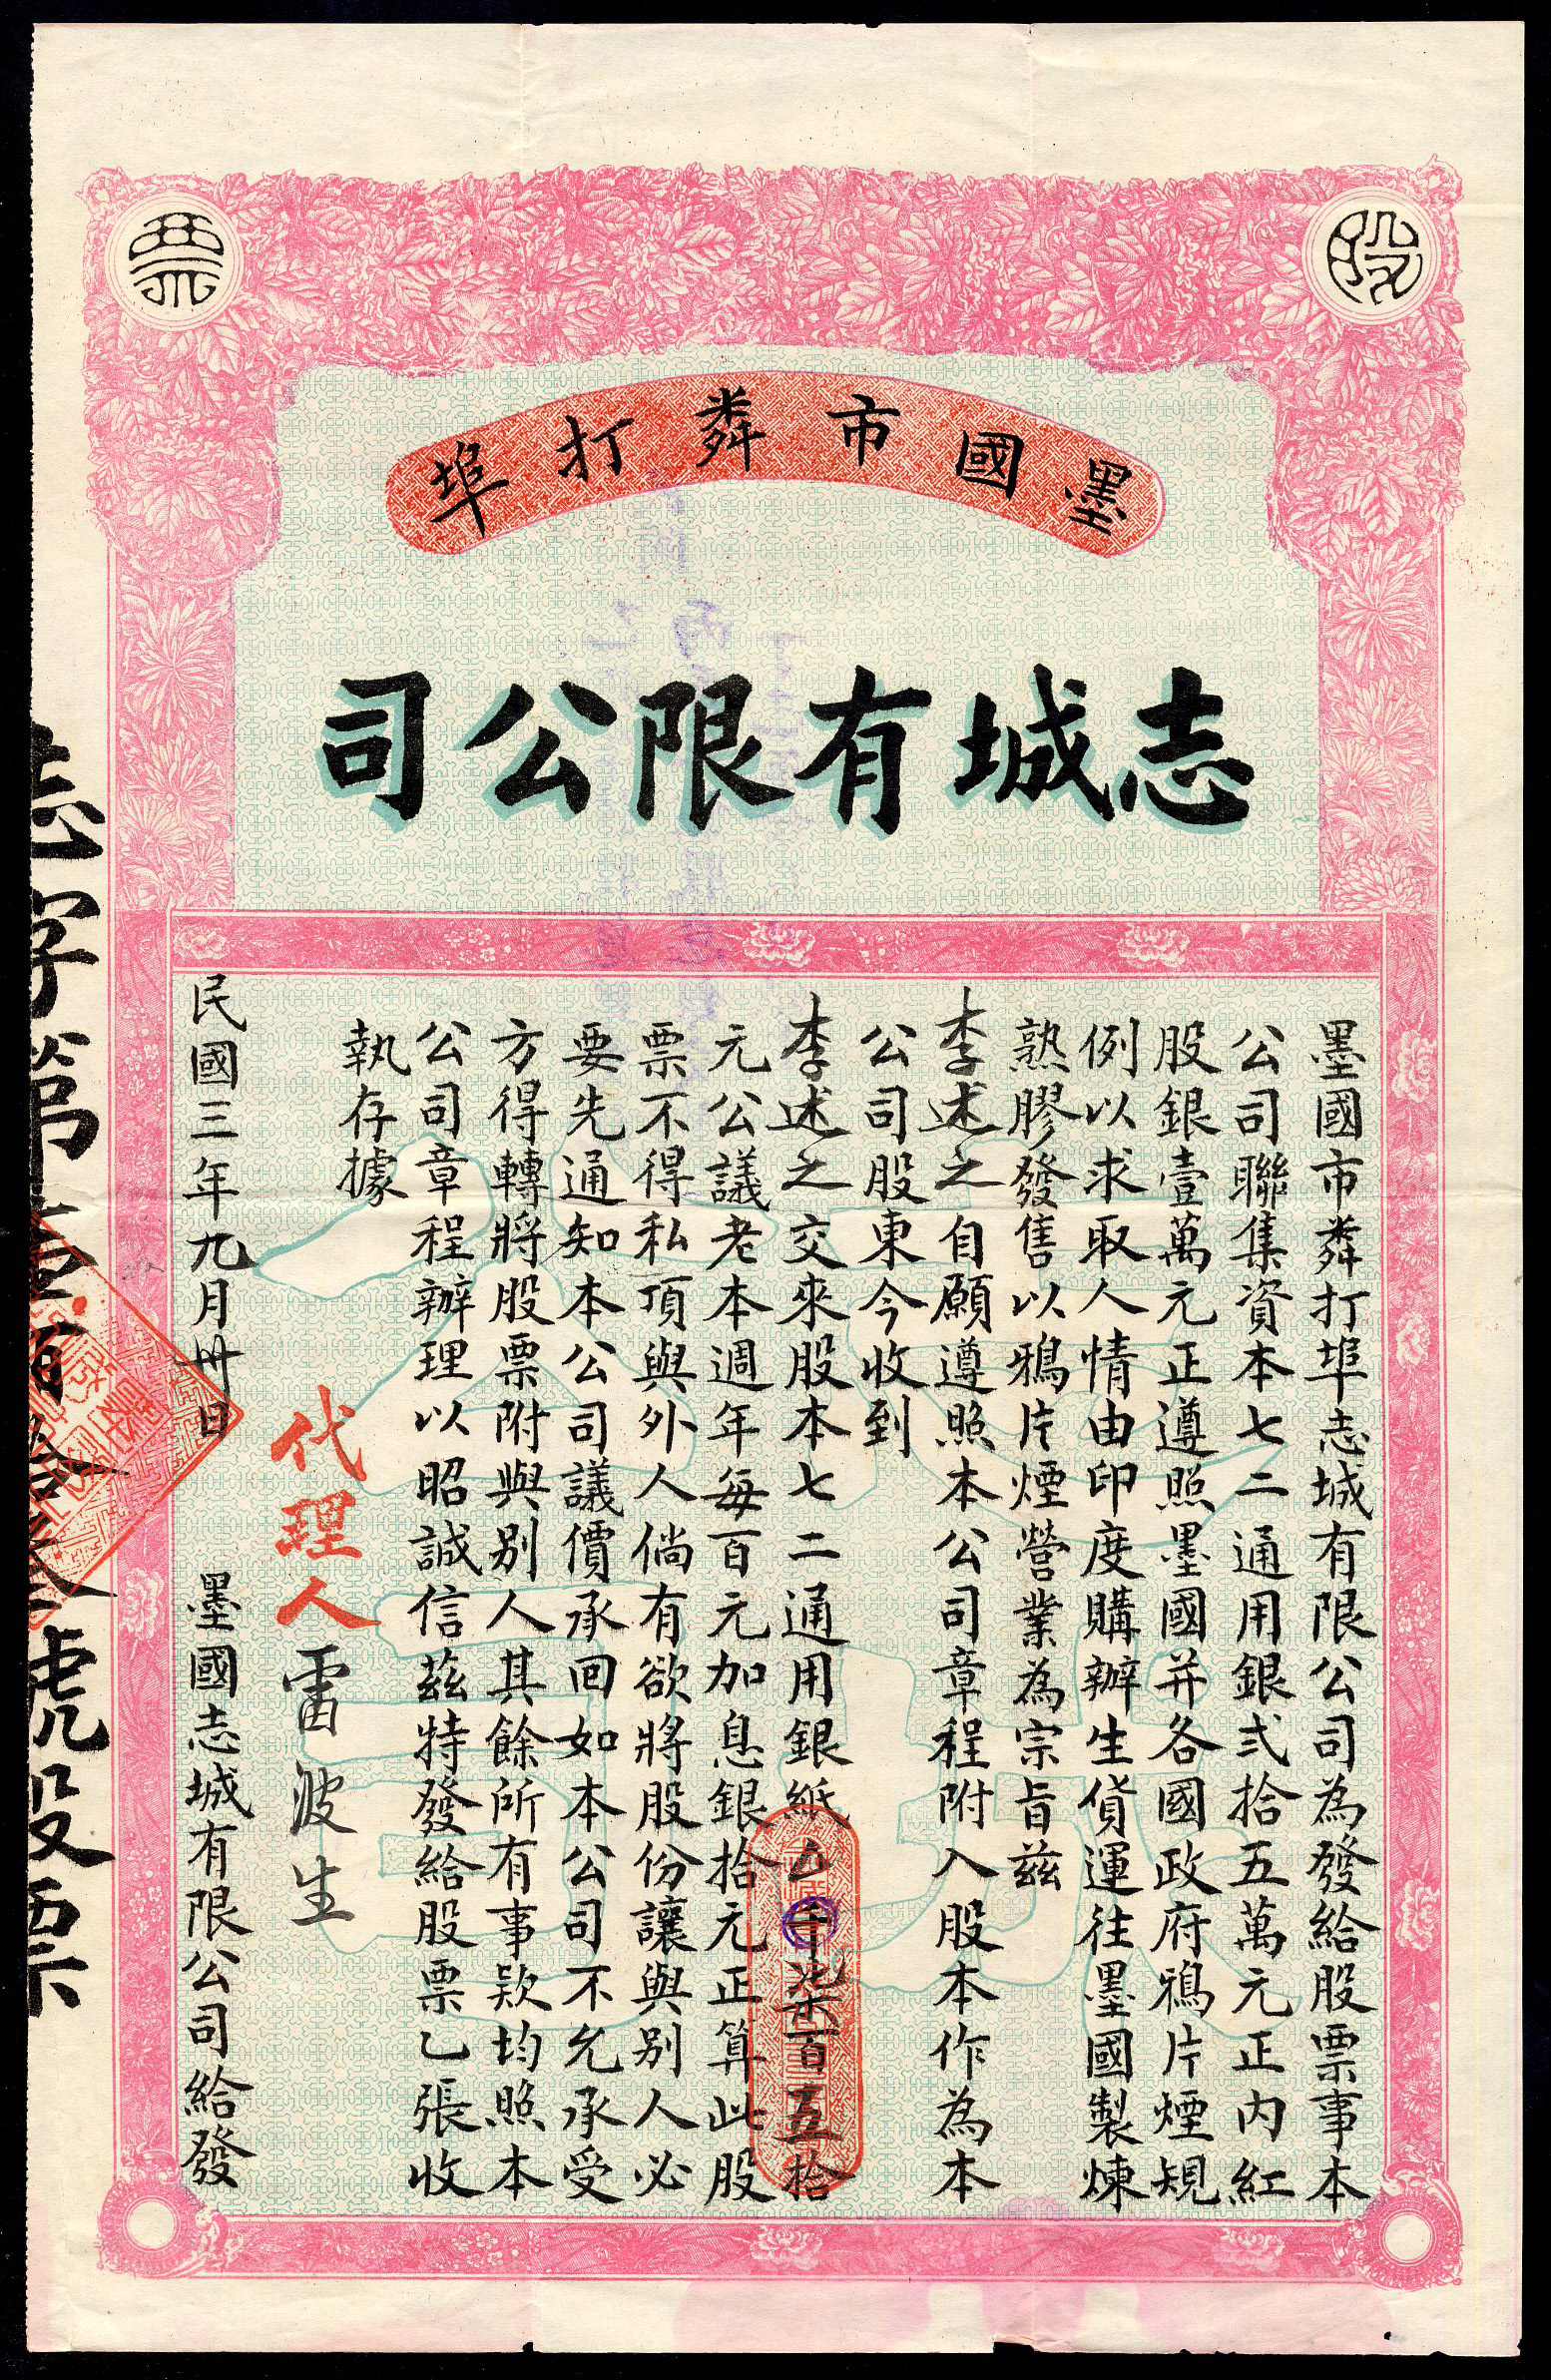 股票
墨國市粦打埠
志城有限公司
墨國市粦打埠志城有限公司為發給股票事本
公司聯集資本七二通用銀弍拾五萬元正內紅
股銀壹萬元正遵照墨國并各國政府鴉片煙規
例以求取人情由印度購辦生貨運往墨國製煉
熟膠發售以鴉片煙營業為宗旨茲
李述之自願遵照本公司章程附入股本作為本
公司股東今收到
李述之交來股本七二通用銀紙 千柒百五拾
元公議老本週年每百元加息銀拾元正算此股
票不得私頂與外人倘有欲將股份讓與別人必
要先通知本公司議價承回如本公司不允承受
方得轉將股票附與別人其餘所有事欵均照本
公司章程辦理以昭誠信茲特發給股票乙張收
執存據
代理人雷波生
民國三年九月卅日 墨國志城有限公司給發
志字第壹百拾 號股票